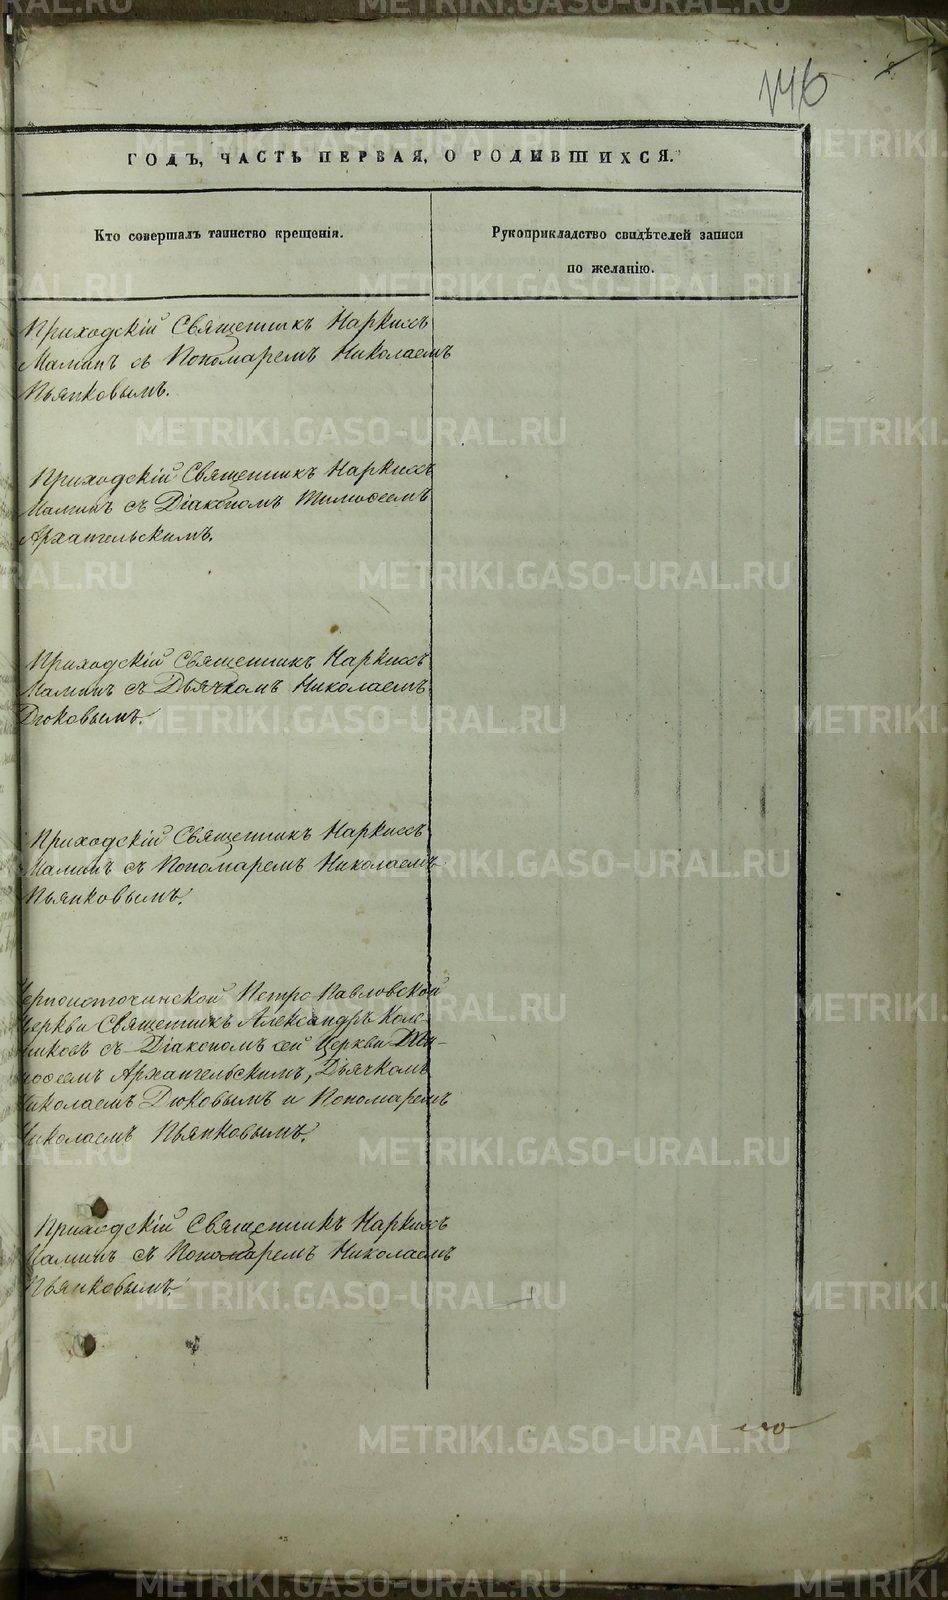 146
ГОДЪ, ЧАСТЬ ПЕРВАЯ, О РОДЫВШИХСЯ.
Кто совершалъ таинство крещенія.
Рукоприкладство свидѣтелей записи
по желанію.
Приходскій Священникъ Наркиссъ
Маминъ съ Пономаремъ Николаемъ
Пьянковымъ.
Приходскій Священникъ Наркиссъ
Маминъ съ Діакономъ Тимоѳеемъ
Архангельскимъ.
Приходскій Священникъ Наркиссъ
Маминъ съ Дьячкомъ Николаемъ
Дюковымъ.
Приходскій Священникъ Наркиссъ
Маминъ съ Пономаремъ Николаемъ
Пьянковымъ.
Черноисточинской Петро Павловской
Церкви Священникъ Александръ
съ Діакономъ сей Церкви Тим-
оѳеемъ Архангельскимъ, Дьячкомъ
Николаемъ Дюковымъ и Пономаремъ
Николаемъ Пьянковымъ.
Приходскій Священникъ Наркиссъ
Маминъ съ Пономаремъ Николаемъ
Пьянковымъ.
METRIKI.GASO-URAL.RU